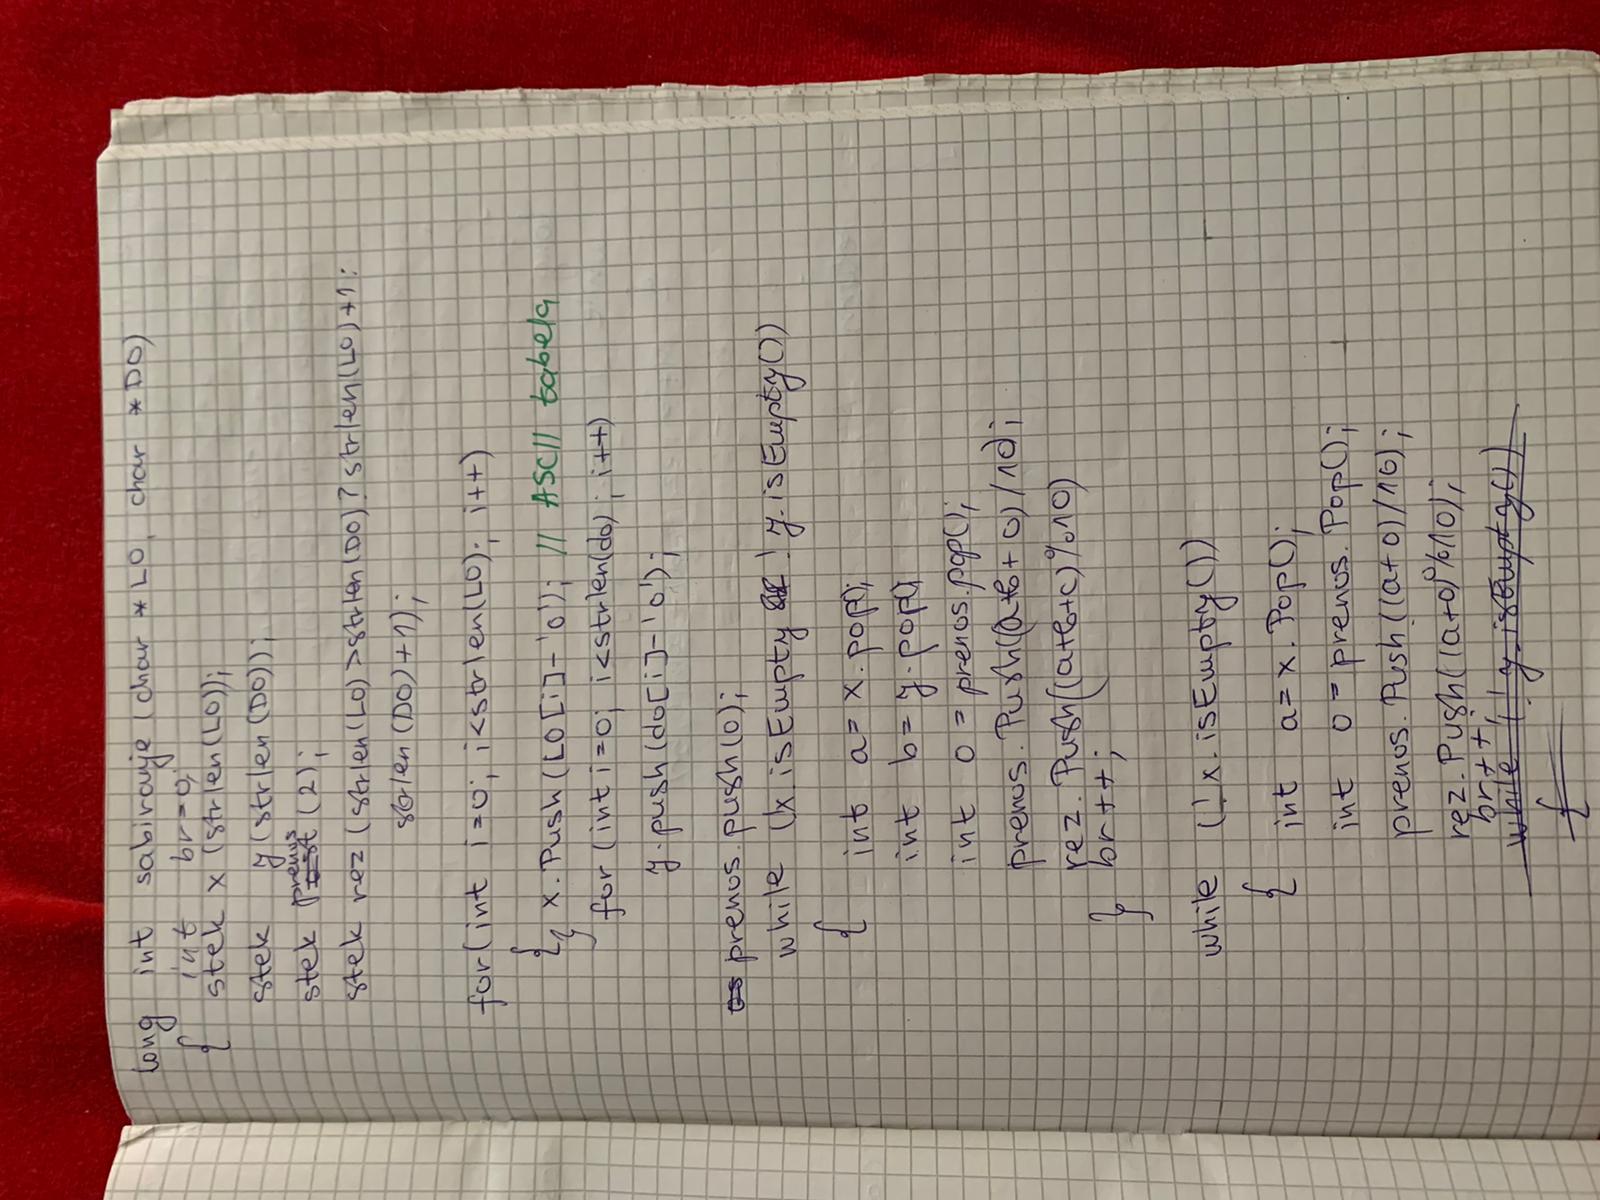 long int sabirouje (char * LO, char * DO)
{ int br=0;
stek x (strlen(LO));
stek y (strlen(DO));
stek prenos (2);
stek rez (strlen(LO) >strlen(DO)? strlen(LO)+1:
strlen(DO)+1);
for(int i=0; i<strlen(LO); i++)
{ x.Push(LO[i]-'0'); // ASCII tabela
} for(int i=0; i<strlen(do); i++)
y.push(do[i]-'0');
prenos.push(0);
while (!x.isEmpty ! y.isEmpty())
{ int a=x.pop();
int b=y.pop();
int o=prenos.pop();
prenos.Push((a+b+o)/10);
rez.Push((a+b+c)%10)
br++;
}
while (!x.isEmpty())
{ int a=x.Pop();
int o=prenos.Pop();
prenos.Push((a+o)/16);
rez.Push((a+o)%10);
br++;
while (!y.isEmpty())
{